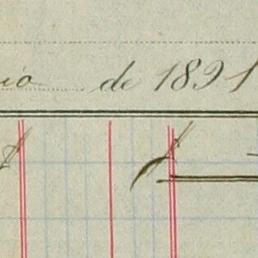 io de 1891